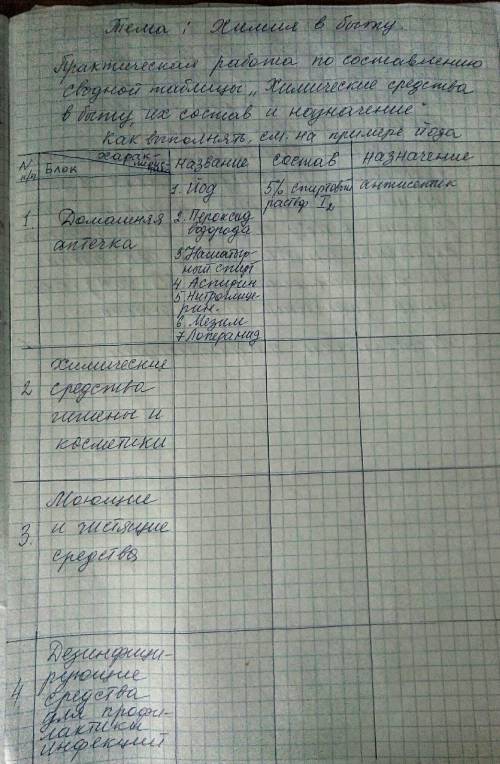 Тема: Химия в быту.
Практическая работа по составлению
сводной таблицы „Химические средства
в быту, их состав и назначение"
Как выполнять, см. на примере йода
N/п/п Блок харак- название состав назначение
1. Домашняя аптечка
1. Йод 5% спиртовый раствор I2 антисептик
2. Пероксид
водорода
3 Нашатыр-
ный спирт
4 Аспирин
5 Нитроглице-
рин.
6. Мезим
7 Лоперамид
2 Химические
средства
гигиены и
косметики
3. Моющие
и чистящие
средства
4 Дезинфици-
рующие
средства
для профи-
лактики
инфекций